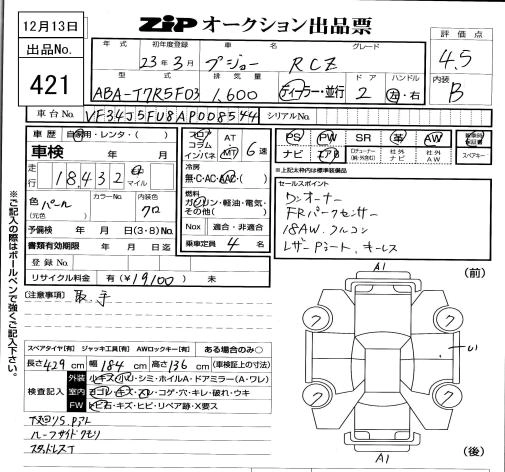 12月13日
ZIP オークション出品票
出品No.
421
評価点
4.5
内装
B
年式
初年度登録
車名
グレード
23年3月
プジョー RCZ
型式
排気量
ドア
ハンドル
ABA-T7R5F03
1,600
ディーラー・並行
2
左・右
車台No.
VF34J5FU8AP008544
シリアルNo.
車歴
自家用・レンタ・( )
車検
年 月
走行
18,432
km
マイル
色
パール
(元色)
カラーNo.
内装色
クロ
予備検 年 月 日(3・8)No.
書類有効期限 年 月 日迄
登録No.
リサイクル料金 有(¥19100) 未
フロア
コラム
インパネ
AT
MT
6速
冷房
無・C・AC・AAC・( )
燃料
ガソリン・軽油・電気・
その他( )
Nox
適合・非適合
乗車定員 4 名
PS
PW
SR
革
AW
ナビ
エアB
社外
ナビ
社外
AW
スペアキー
※上記太枠内は標準装備品
セールスポイント
ワンオーナー
FRパークセンサー
18AW. フルコン
レザーP.シート、キーレス
[注意事項]
取.手
※ご記入の際はボールペンで強くご記入下さい。
スペアタイヤ[有] ジャッキ工具[有] AWロックキー[有] ある場合のみ○
長さ429cm 幅184cm 高さ136cm (車検証上の寸法)
検査記入
外装
少キズ・小凹・シミ・ホイルA・ドアミラー(A・ワレ)
室内
ヨゴレ・キズ・スレ・コゲ・穴・キレ・破れ・ウキ
FW
トビ石・キズ・ヒビ・リペア跡・X要ス
ルーフサイドクモリ
スタッドレスT
A1
(前)
A1
(後)